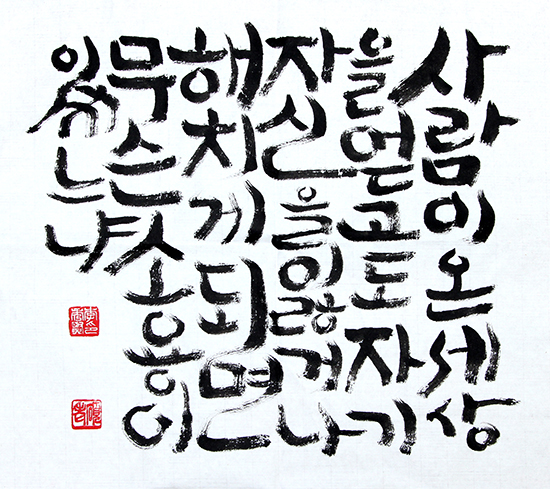 사람이온세상
을얻고도자기
자신을잃거나
해치게되면
무슨소용이
있느냐